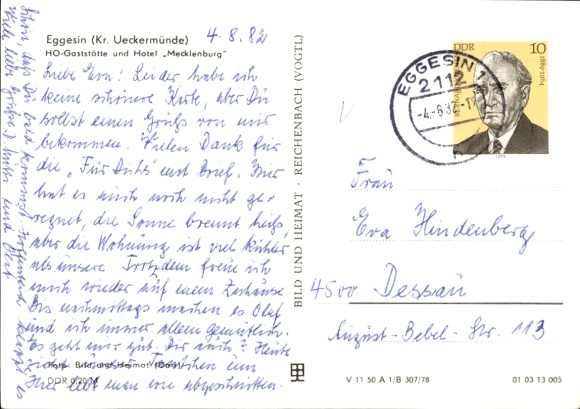 Eggesin (Kr. Ueckermünde)
HO-Gaststätte und Hotel „Mecklenburg"
4.8.82
Liebe Eva! Leider habe ich
keine schönere Karte, aber Du
sollst einen Gruß von mir
bekommen. Vielen Dank für
die „Für Dich" und Brief. Hier
hat es auch noch nicht ge-
regnet, die Sonne brennt heiß,
aber die Wohnung ist viel kühler
als unsere. Trotzdem freue ich
mich wieder auf mein Zuhause.
Bis nachmittags machen es Olaf
und ich immer allein gemütlich.
Es geht mir gut. Dir auch? Heute
zieht
ein
Hier lebt man wie abgeschnitten.
Schön, daß Du bald kommst. Hoffentlich klappt es
Viele liebe Grüße! Mutti und Olaf
Foto: Bild und Heimat
DDR 0,20 M
BILD UND HEIMAT · REICHENBACH (VOGTL)
EGGESIN 1
2112
-4.-8.82-17
DDR
10
1889-1964
1979
Frau
Eva Hindenberg
4500 Dessau
August-Bebel-Str. 113
V 11 50 A 1/B 307/78
01 03 13 005